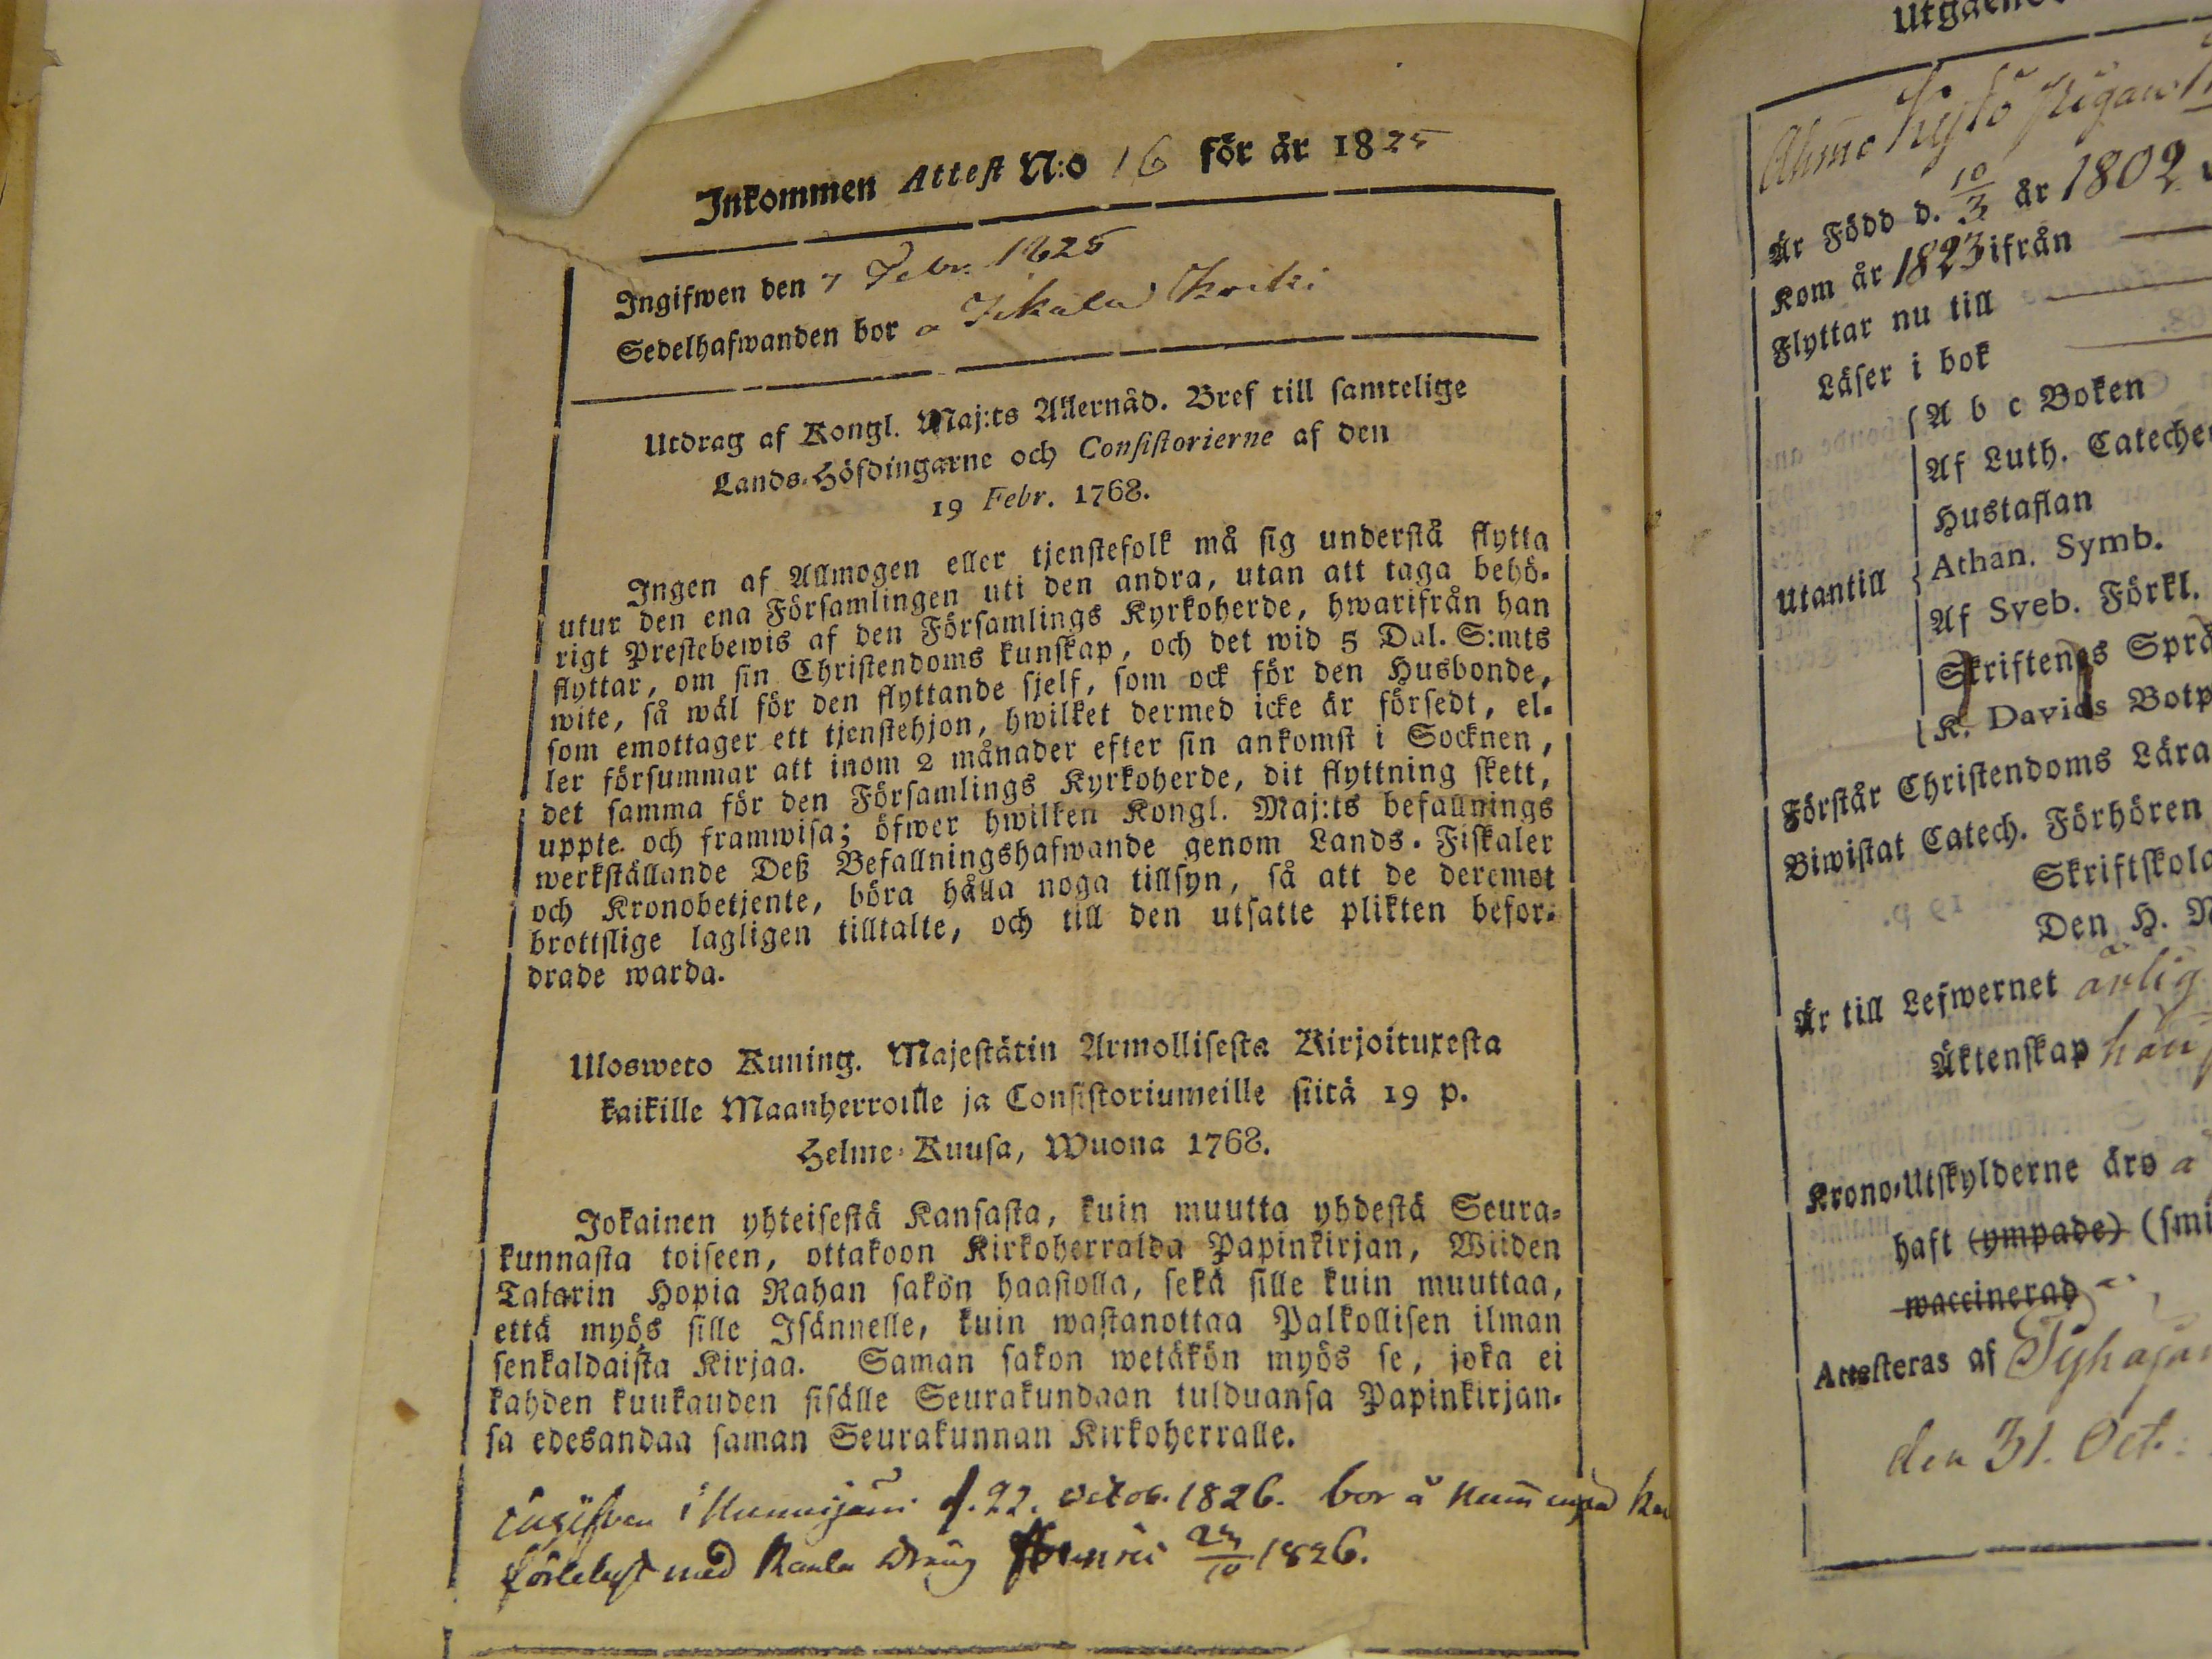 Inkommen Attest N:o 16 för år 1825
Ingifwen den 7 Febr. 1825
Sedelhafwanden bor a
Utdrag af Kongl. Maj:ts Allernåd. Bref till samtelige
Lands-Höfdingarne och Consistorierne af den
19 Febr. 1768.
Ingen af Allmogen eller tjenstefolk må sig understå flytta
utur den ena Församlingen uti den andra, utan att taga behö-
rigt Prestebewis af den Församlings Kyrkoherde, hwarifrån han
flyttar, om sin Christendoms kunskap, och det wid 5 Dal. S:mts
wite, så wäl för den flyttande sjelf, som ock för den Husbonde,
som emottager ett tjenstehjon, hwilket dermed icke är försedt, el-
ler försummar att inom 2 månader efter sin ankomst i Socknen,
det samma för den Församlings Kyrkoherde, dit flyttning skett,
uppte och framwisa; öfwer hwilken Kongl. Maj:ts befallnings
werkställande Deß Befallningshafwande genom Lands-Fiskaler
och Kronobetjente, böra hålla noga tillsyn, så att de deremot
brottslige lagligen tilltalte, och till den utsatte plikten befor-
drade warda.
Ulosweto Kuning. Majestätin Armollisesta Kirjoituxesta
kaikille Maanherroille ja Consistoriumeille siitä 19 p.
Helme-Kuusa, Wuona 1768.
Jokainen yhteisestä Kansasta, kuin muutta yhdestä Seura-
kunnasta toiseen, ottakoon Kirkoherralda Papinkirjan, Wiiden
Talarin Hopia Rahan sakön haastolla, sekä sille kuin muuttaa,
että myös sille Isännelle, kuin wastanottaa Palkollisen ilman
senkaldaista Kirjaa. Saman sakon wetäkön myös se, joka ei
kahden kuukauden sisälle Seurakundaan tulduansa Papinkirjan-
sa edesandaa saman Seurakunnan Kirkoherralle.
ingifven i d. 22. Octob. 1826. bor å
förlelyst med Kaala Dräng Henric 23/10 1826.
Utgående
Är Född d. 10/3 år 1802
Kom år 1823 ifrån
Flyttar nu till
Läser i bok
Utantill
A b c Boken
Af Luth. Cateches
Hustaflan
Athan. Symb.
Af Sveb. Förkl.
Skriftenes Språ
K. Davids Botp
Förstår Christendoms Lära
Biwistat Catech. Förhören
Skriftskola
Den H. N
Är till Lefwernet ärlig
Äktenskap
Krono-Utskylderne äro a
haft (ympade) (smi
waccinerad
Attesteras af Pyhäjo
den 31. Oct.